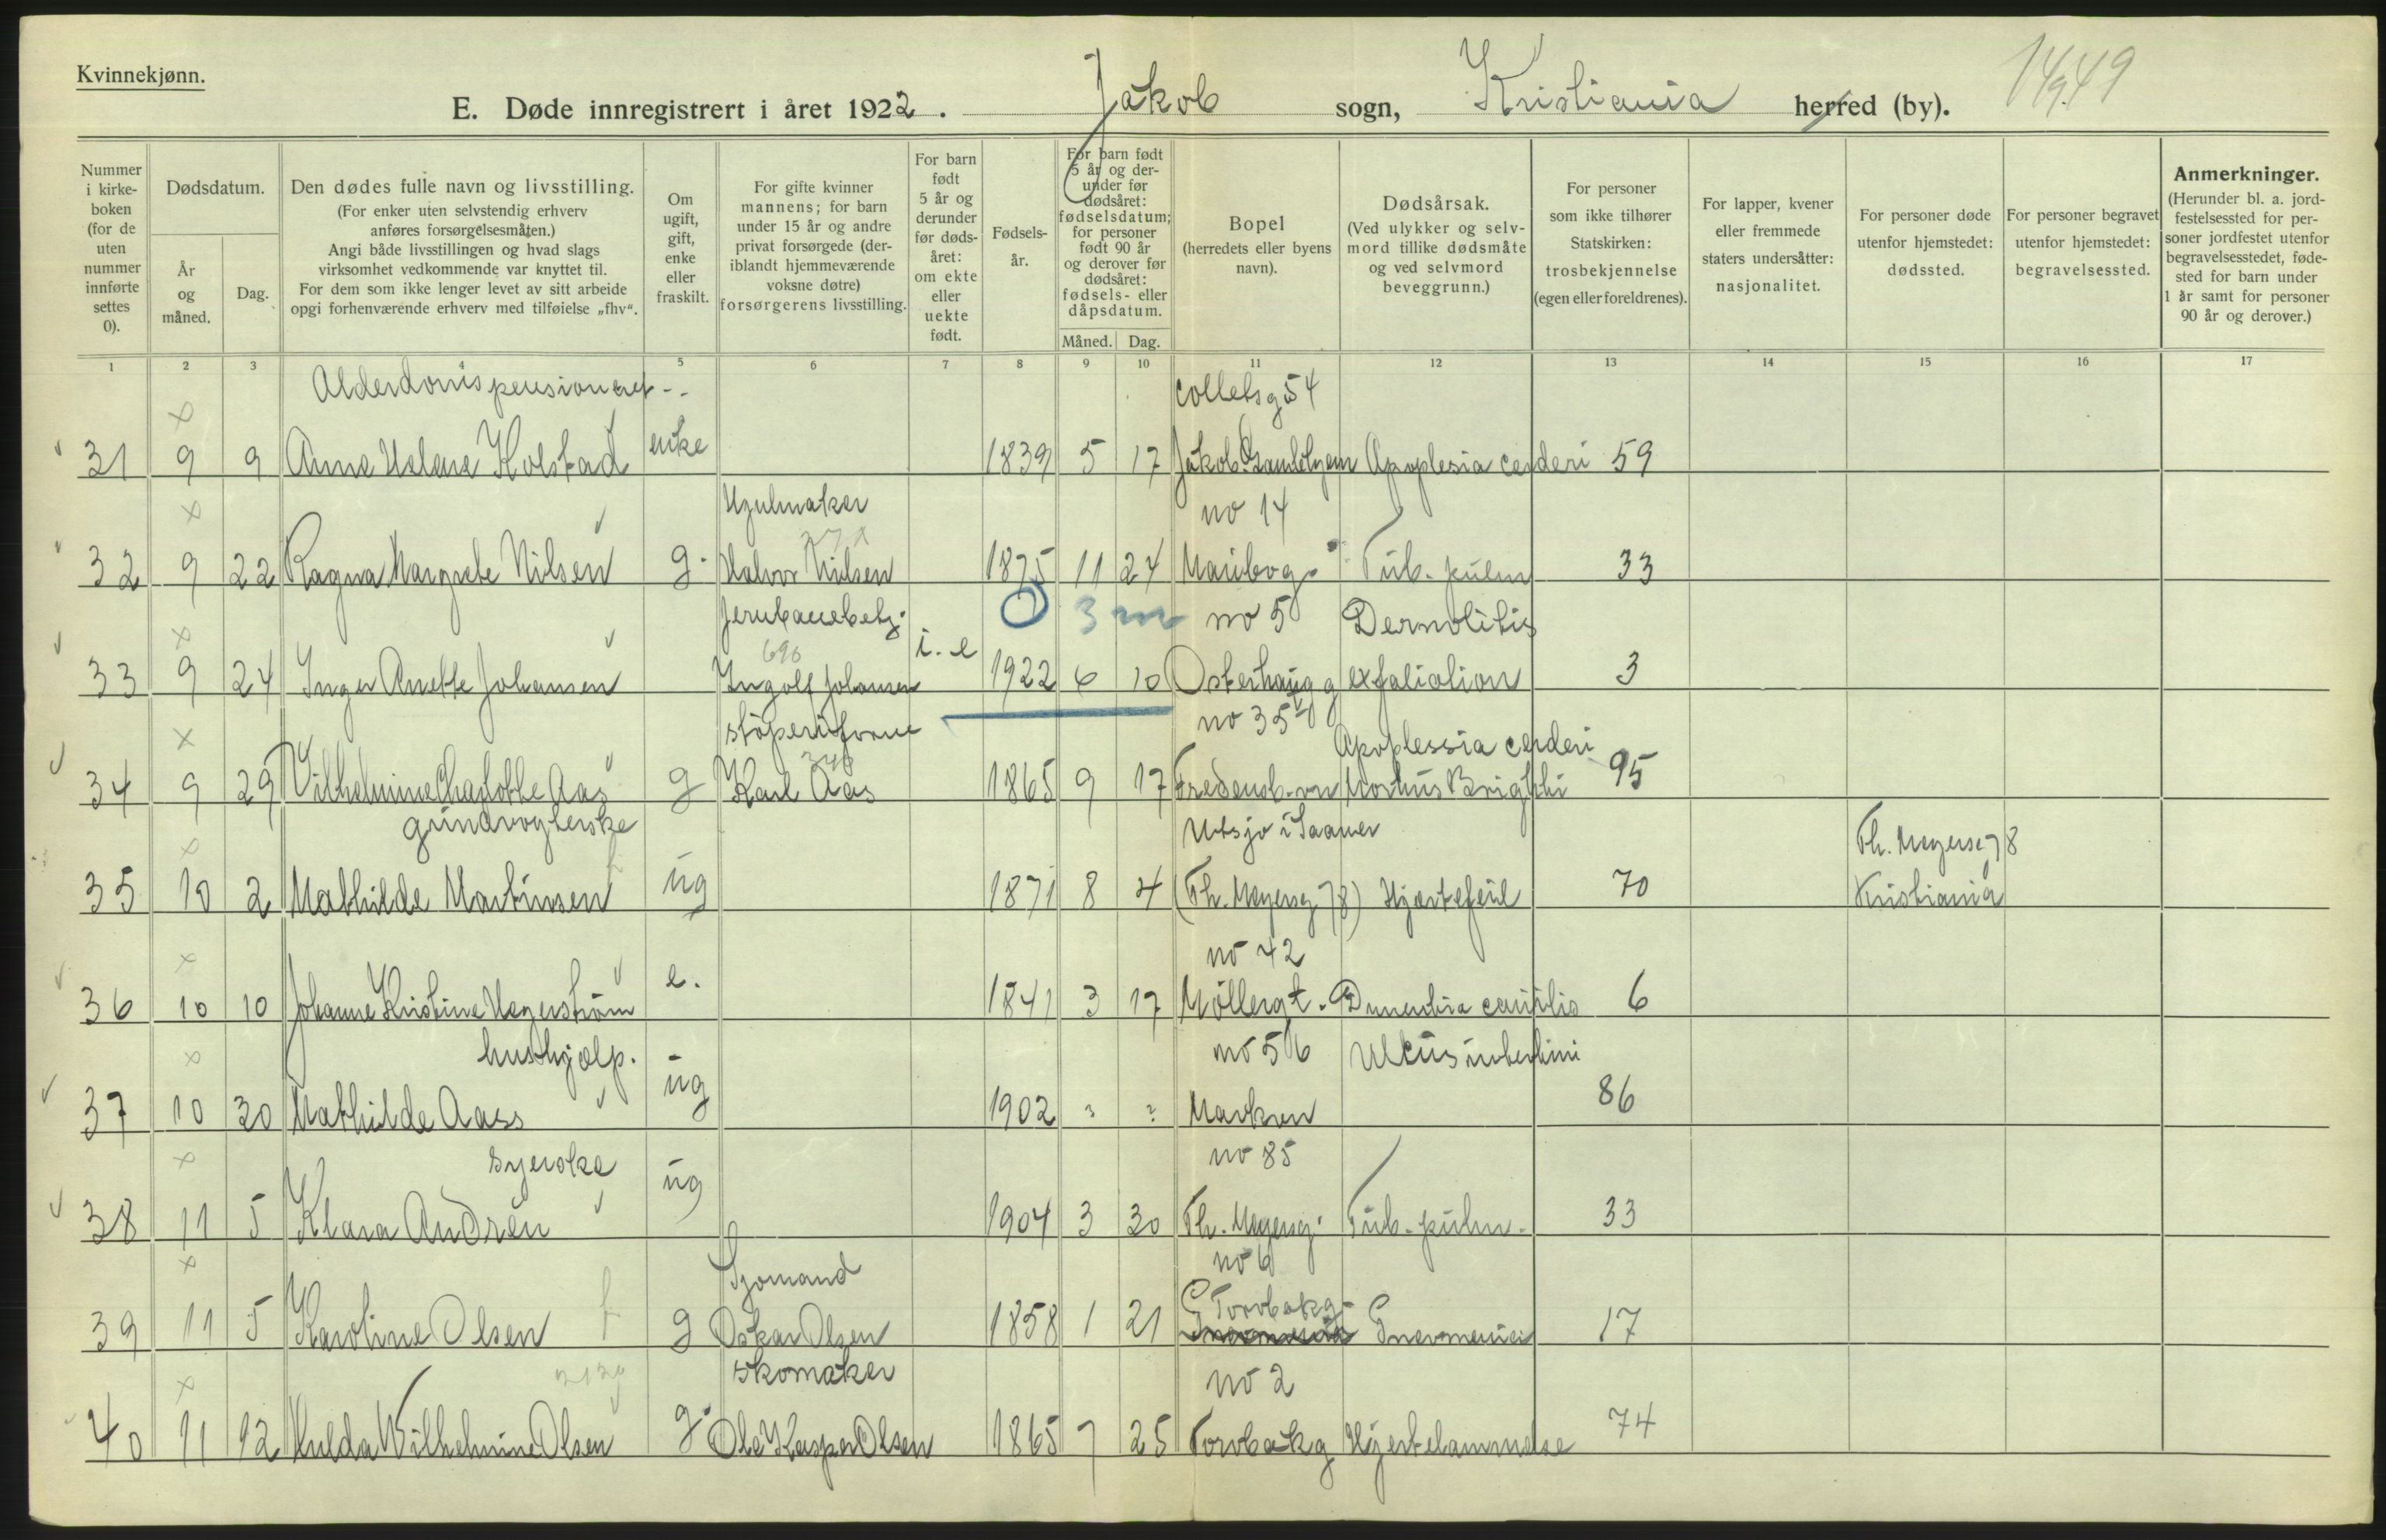 Kvinnekjønn.
E. Døde innregistrert i året 1922. Jakob sogn, Kristiania herred (by).
Nummer i kirkeboken (for de uten nummer innførte settes 0).
Dødsdatum.
År og måned.
Dag.
Den dødes fulle navn og livsstilling.
(For enker uten selvstendig erhverv anføres forsørgelsesmåten.)
Angi både livsstillingen og hvad slags virksomhet vedkommende var knyttet til.
For dem som ikke lenger levet av sitt arbeide opgi forhenværende erhverv med tilføielse „fhv“.
Om ugift, gift, enke eller fraskilt.
For gifte kvinner mannens; for barn under 15 år og andre privat forsørgede (deriblandt hjemmeværende voksne døtre) forsørgerens livsstilling.
For barn født 5 år og derunder før dødsåret: om ekte eller uekte født.
Fødselsår.
For barn født 5 år og derunder før dødsåret: fødselsdatum; for personer født 90 år og derover før dødsåret: fødsels- eller dåpsdatum.
Måned. Dag.
Bopel (herredets eller byens navn).
Dødsårsak. (Ved ulykker og selvmord tillike dødsmåte og ved selvmord beveggrunn.)
For personer som ikke tilhører Statskirken: trosbekjennelse (egen eller foreldrenes).
For lapper, kvener eller fremmede staters undersåtter: nasjonalitet.
For personer døde utenfor hjemstedet: dødssted.
For personer begravet utenfor hjemstedet: begravelsessted.
Anmerkninger. (Herunder bl. a. jordfestelsessted for personer jordfestet utenfor begravelsesstedet, fødested for barn under 1 år samt for personer 90 år og derover.)
1 2 3 4 5 6 7 8 9 10 11 12 13 14 15 16 17
Colletsg 54
31 9 9 Anna Helene Kolstad enke 1839 5 17 Jakobs Gamlehjem 59
Hjulmaker no 14
32 9 22 Ragna Margrete Nilsen g. Halvor Nilsen 1875 11 24 Maribog. Tub. pulm 33
Jernbanebetj. 3 m no 5
696
33 9 24 Inger Anette Johansen Ingolf Johansen i. e 1922 6 10 Osterhausg 3
no 35
34 9 29 Vilhelmine Charlotte Aas g Karl Aas 1865 9 17 Morbus Brighti 95
35 10 2 Mathilde Martinsen ug 1871 8 4 (Th. Meyersg 78) Hjertefeil 70 Th. Meyersg 78 Kristiania
no 42
36 10 10 Johanne Kristine Hegerstrøm e. 1841 3 17 Møllergt. 6
hushjælp. no 56
37 10 30 Mathilde Aass ug 1902 ? ? 86
syerske no 85
38 11 5 Klara Andrén ug 1904 3 30 Th. Meyersg. Tub. pulm. 33
Sjømand no 6
39 11 5 Karoline Olsen g Oskar Olsen 1858 1 21 Torvbakg. 17
skomaker no 2
40 11 12 Hulda Wilhelmine Olsen g. Ole Kasper Olsen 1865 7 25 Torvbakg Hjertelammelse 74